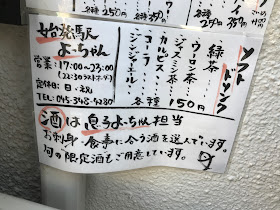 各種250円
350円
ソフトドリンク
緑茶
ウーロン茶
ジャスミン茶
カルピス
コーラ
ジンジャーエール
各種150円
始発駅
よっちゃん
営業:17:00~23:00
(22:30ラストオーダー)
定休日:日・祝
TEL:045-348-9280
酒は息子よっちゃん担当
お刺身・食事に合う酒を選んでいます。
旬の限定酒もご用意しています。